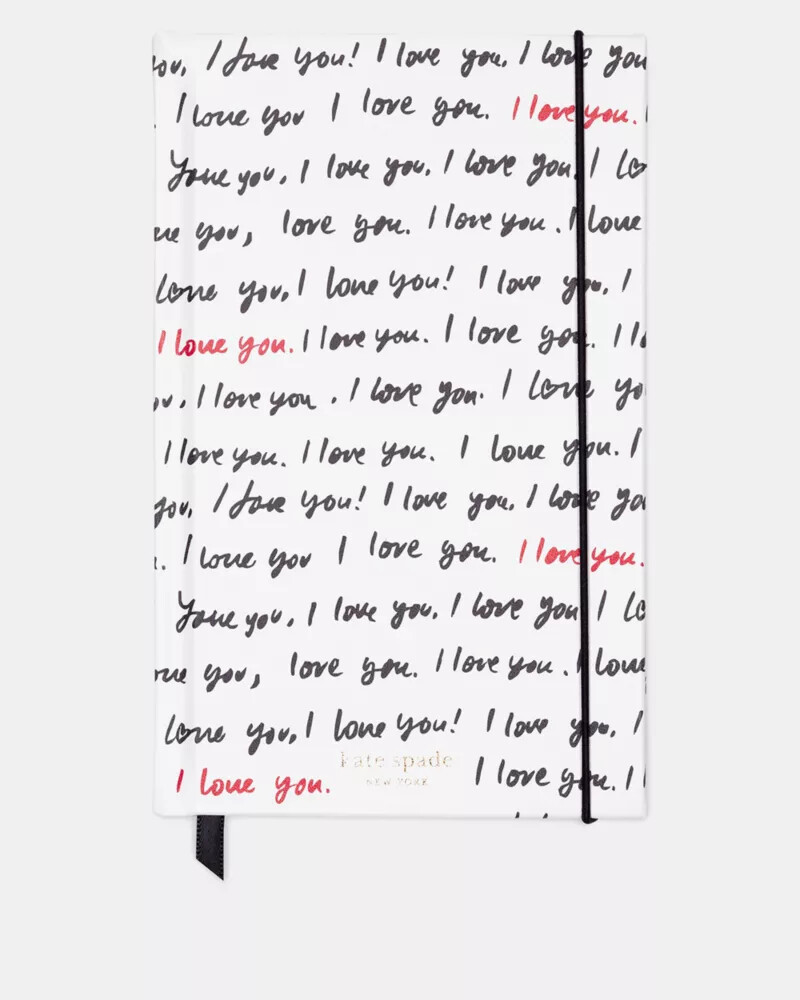 you, I love you! I love you, I love you
. I love you I love you. I love you. I
love you, I love you, I love you, I lo
ve you, love you. I love you. I love
love you, I love you! I love you, I
I love you. I love you. I love you. I l
you, I love you, I love you. I love yo
I love you. I love you. I love you. I
you, I love you! I love you, I love yo
. I love you I love you. I love you.
love you, I love you, I love you I lo
ve you, love you. I love you. I love
love you, I love you! I love you, I
kate spade
NEW YORK
I love you. I love you. I l